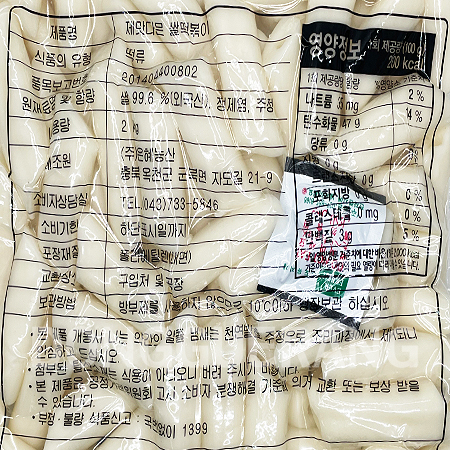 제품명 제맛다믄 쌀떡볶이
식품의 유형 떡류
품목보고번호 201404400802
원재료명 및 함량 쌀 99.6 %(외국산), 정제염, 주정
2 kg
제조원 (주)은혜농산
충북 옥천군 군북면 자모길 21-9
소비자상담실 TEL.(043)733-5846
소비기한 하단표시일까지
포장재질 폴리에틸렌(내면)
교환장소 구입처 및
보관방법 방부제를 사용하지 않으므로 10°C이하 냉장보관 하십시오
영양정보
1회 제공량(100 g)
280 kcal
1회 제공량당 함량
나트륨 35 mg 2 %
탄수화물 47 g 14 %
당류 0 g
지방 0 g
포화지방 0 g
콜레스테롤 0 mg 0 %
단백질 3 g 5 %
• 본제품 개봉시 나는 약간의 알콜 냄새는 천연발효 주정으로 조리과정에서 제거되니
안심하고 드십시오
• 첨부된 식용이 아니오니 버려 주시기 바랍니다.
• 본 제품은 공정거래위원회 고시 소비자 분쟁해결 기준에 의거 교환 또는 보상 받을
수 있습니다.
• 부정·불량 식품신고 : 국번없이 1399